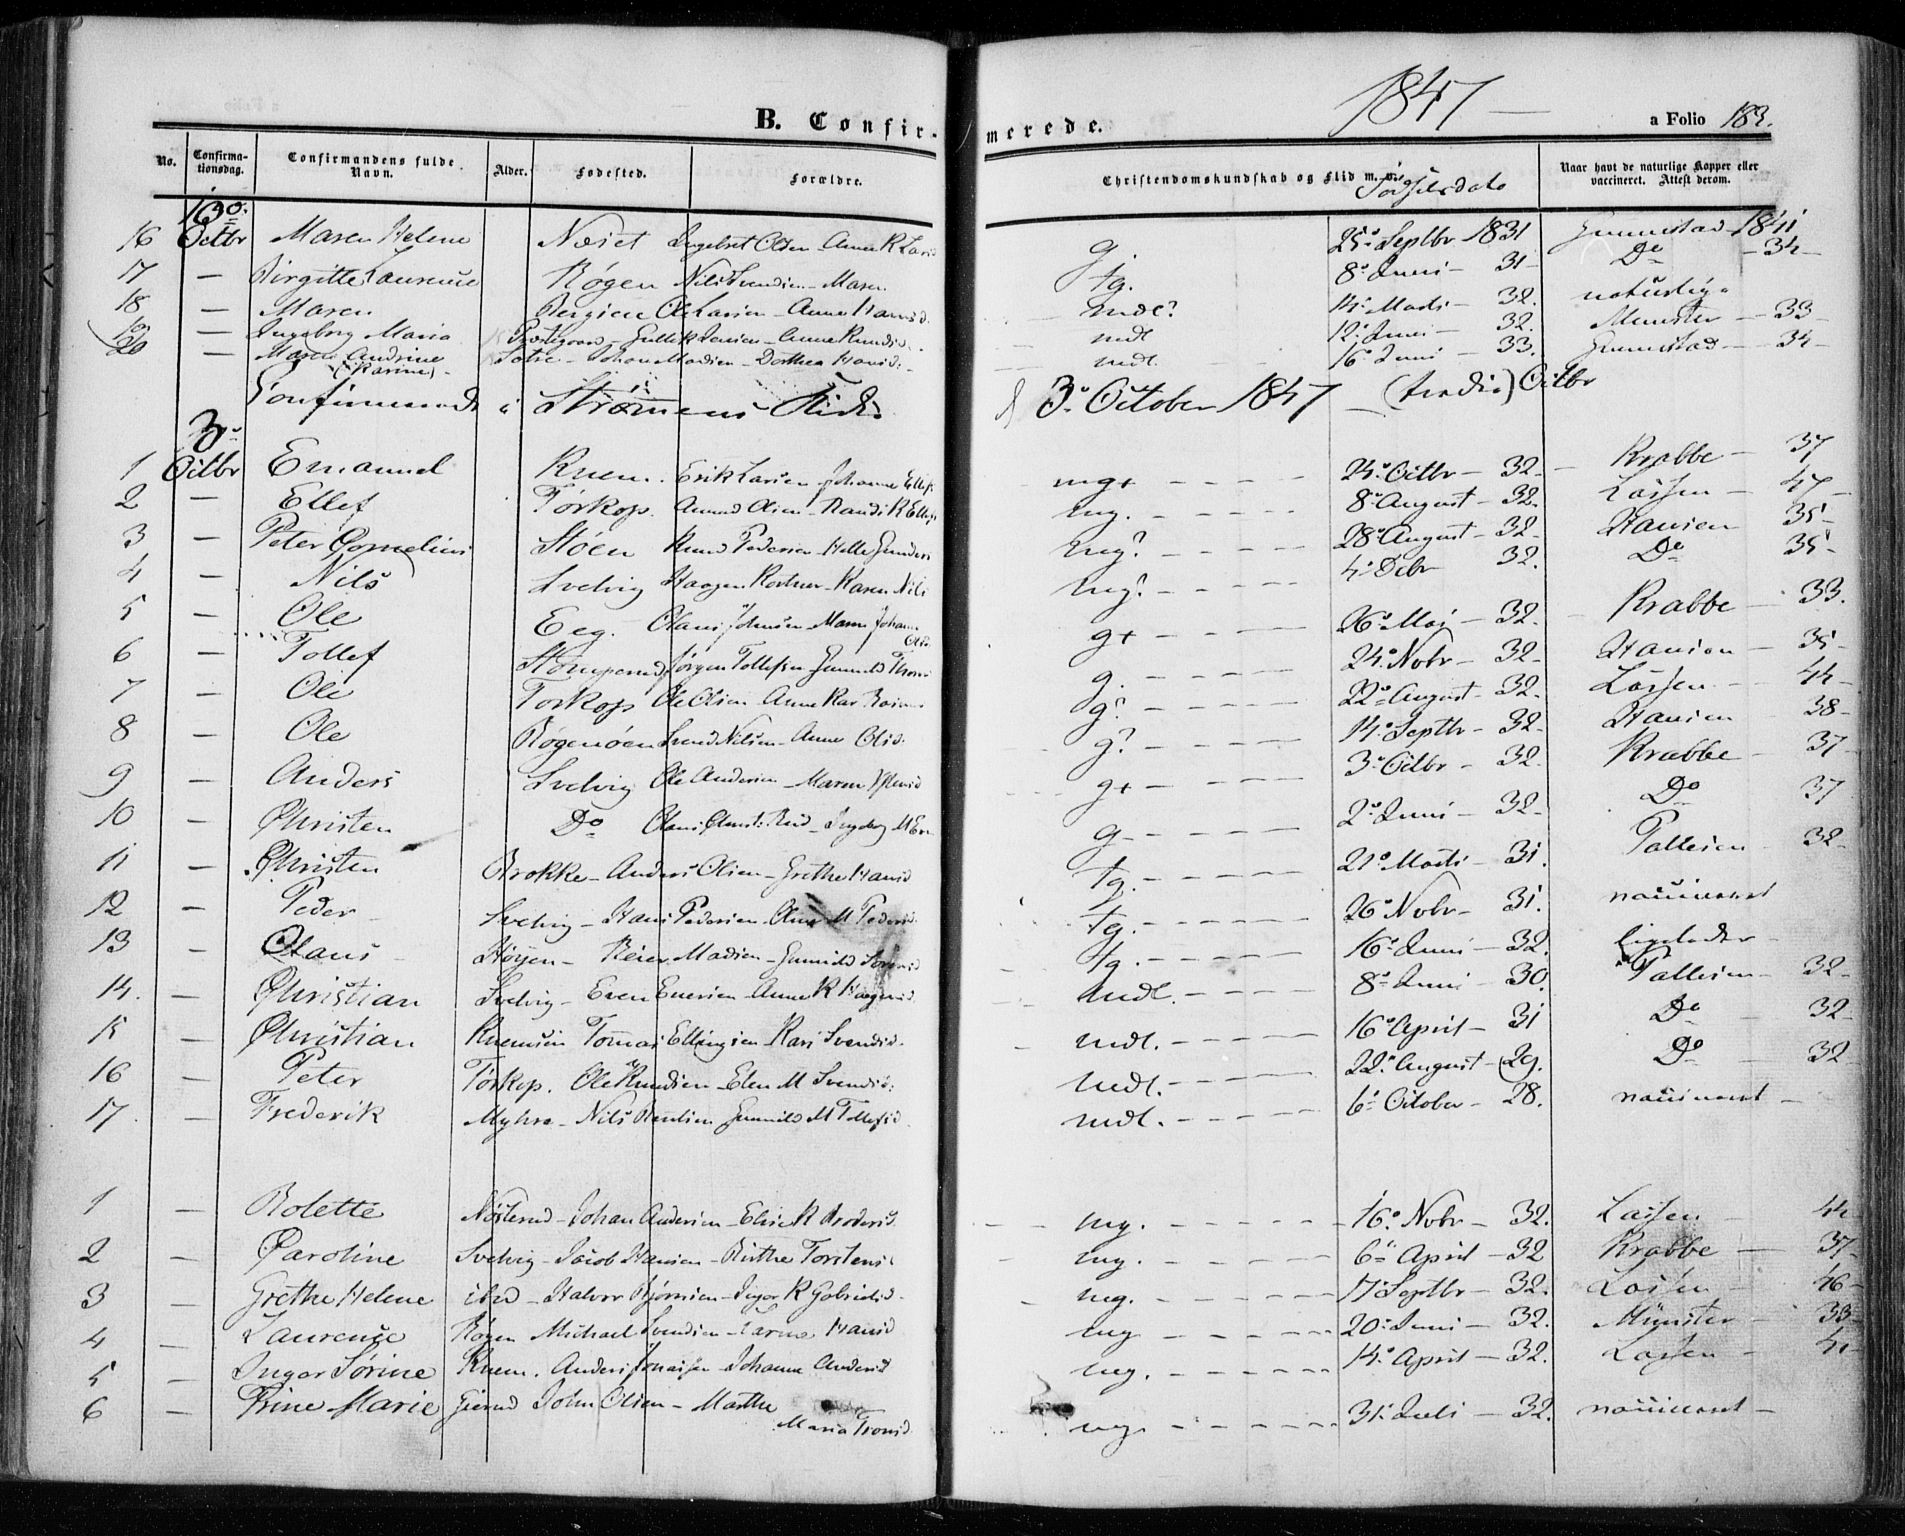 B. Confirmerede. 1847 — a Folio 183.
No. Confirmationsdag. Confirmandens fulde Navn. Alder. Fødested. Forældre. Christendomskundskab og Flid m. v. Fødselsdato Naar havt de naturlige Kopper eller vaccineret. Attest derom.
16 Octbr Maren Helene Næset Ingebret Olsen - Anne K Larsd g. 25de Septbr 1831 Gunnestad 1841
17 — Birgitte Laurense Røgen Nils Svendsen - Maren tg. 8de Juni - 31 - Do - 34 -
18 — Maren Bergien Ole Larsen - Anne Hansd. mdl? 14de Marts - 32. naturlige
19 — Ingeborg Maria Præstegaard - Gullik Jensen - Anne Knudsd. mdl 12te Juni - 32. Münster - 33 -
20 — Maren Andrine (Karine) - Sætre - Johan Madsen - Dorthea Hansd: - mdl. 16de Juni - 33. Gunnestad - 34 -
Confirmerede i Strømmens Kirke d 3de October 1847 — Octbr
3de
1 Octbr Emanuel Knem. Erik Larsen Johanne Ellefs mg+ 24de Octbr - 32 - Krabbe - 37
2 — Ellef Tørkop. Amund Olsen - Randi K Ellefs mg. 8de August - 32. Lassen - 47 -
3 — Peter Cornelius Støen Knud Pedersen - Helle Gunders mg? 28de August - 32 - Hansen 35 -
4 — Nils Svelvig Haagen Kortner - Karen Nils mg? 4de Debr 32. Do 35 -
5 — Ole Eeg. Olaus Johnsen - Maren Johanne Olsd g+ 26de Mai - 32. Krabbe - 33.
6 — Tollef Stømperud Jørgen Tollefsen Gunnild Thrond g. 24de Nobr - 32 - Hansen - 35 -
7 — Ole Torkop Ole Olsen - Anne Kar g? 22de August - 32 - Lassen - 44 -
8 — Ole Røgenøen Svend Nilsen - Anne Olsd. g? 14de Septbr - 32 - Hansen 38 -
9 — Anders Svelvig Ole Andersen - Maren g+ 3de Octbr - 32. Krabbe - 37 -
10 — Christen Do Claus Christ: - Ingeborg M g - 2de Juni - 32 - Do 37
11 — Christen Brokke - Anders Olsen - Grethe Hansd tg. 21de Marts - 31. Pallesen 32 -
12 — Peder Svelvig - Hans Pedersen - M Pedersd. tg. 26de Nobr - 31. vaccineret
13 — Olaus Høyen - Reier Madsen - Gunnild tg. 16de Juni - 32. ligeledes -
14. — Christian Svelvig - Even Evensen - Anne K mdl. 8de Juni - 30. Pallesen - 32 -
15 — Christian Knemsien Tomas Ellingsen - Kari Svendsd. mdl. 16de April - 31 Do 32 -
16 — Peter Tørkop. Ole Knudsen - Elen M Svendsd: mdl. 22de August - 29. Do 32
17. — Frederik Myhre - Nils Gunnild M Tollefsd. mdl. 6te October - 28. vaccineret -
1 — Bolette Nøsterud - Johan Andersen - Elise K Brodersd. mg. 16de Nobr - 32. Lassen - 44
2 — Caroline Svelvig - Jacob Hansen - Birthe Torstens mg. 6te April - 32 Krabbe - 37 -
3 — Grethe Helene ibid - Halvor Bjørnsen - Inger K Gabrielsd - mg. 17 Septbr - 32. Lassen - 46 -
4 — Laurense Røgen Michael Svendsen - Hansd mg 20de Juni - 32. Münster - 33 -
5 — Inger Sørine Knem. Anders Jonassen - Johanne Andersd mg. 14de April - 32. Lassen -
6 — Trine Marie Gierud John Olsen - Marthe Maria Tronsd. mg. 31te Juli - 32. vaccineret -